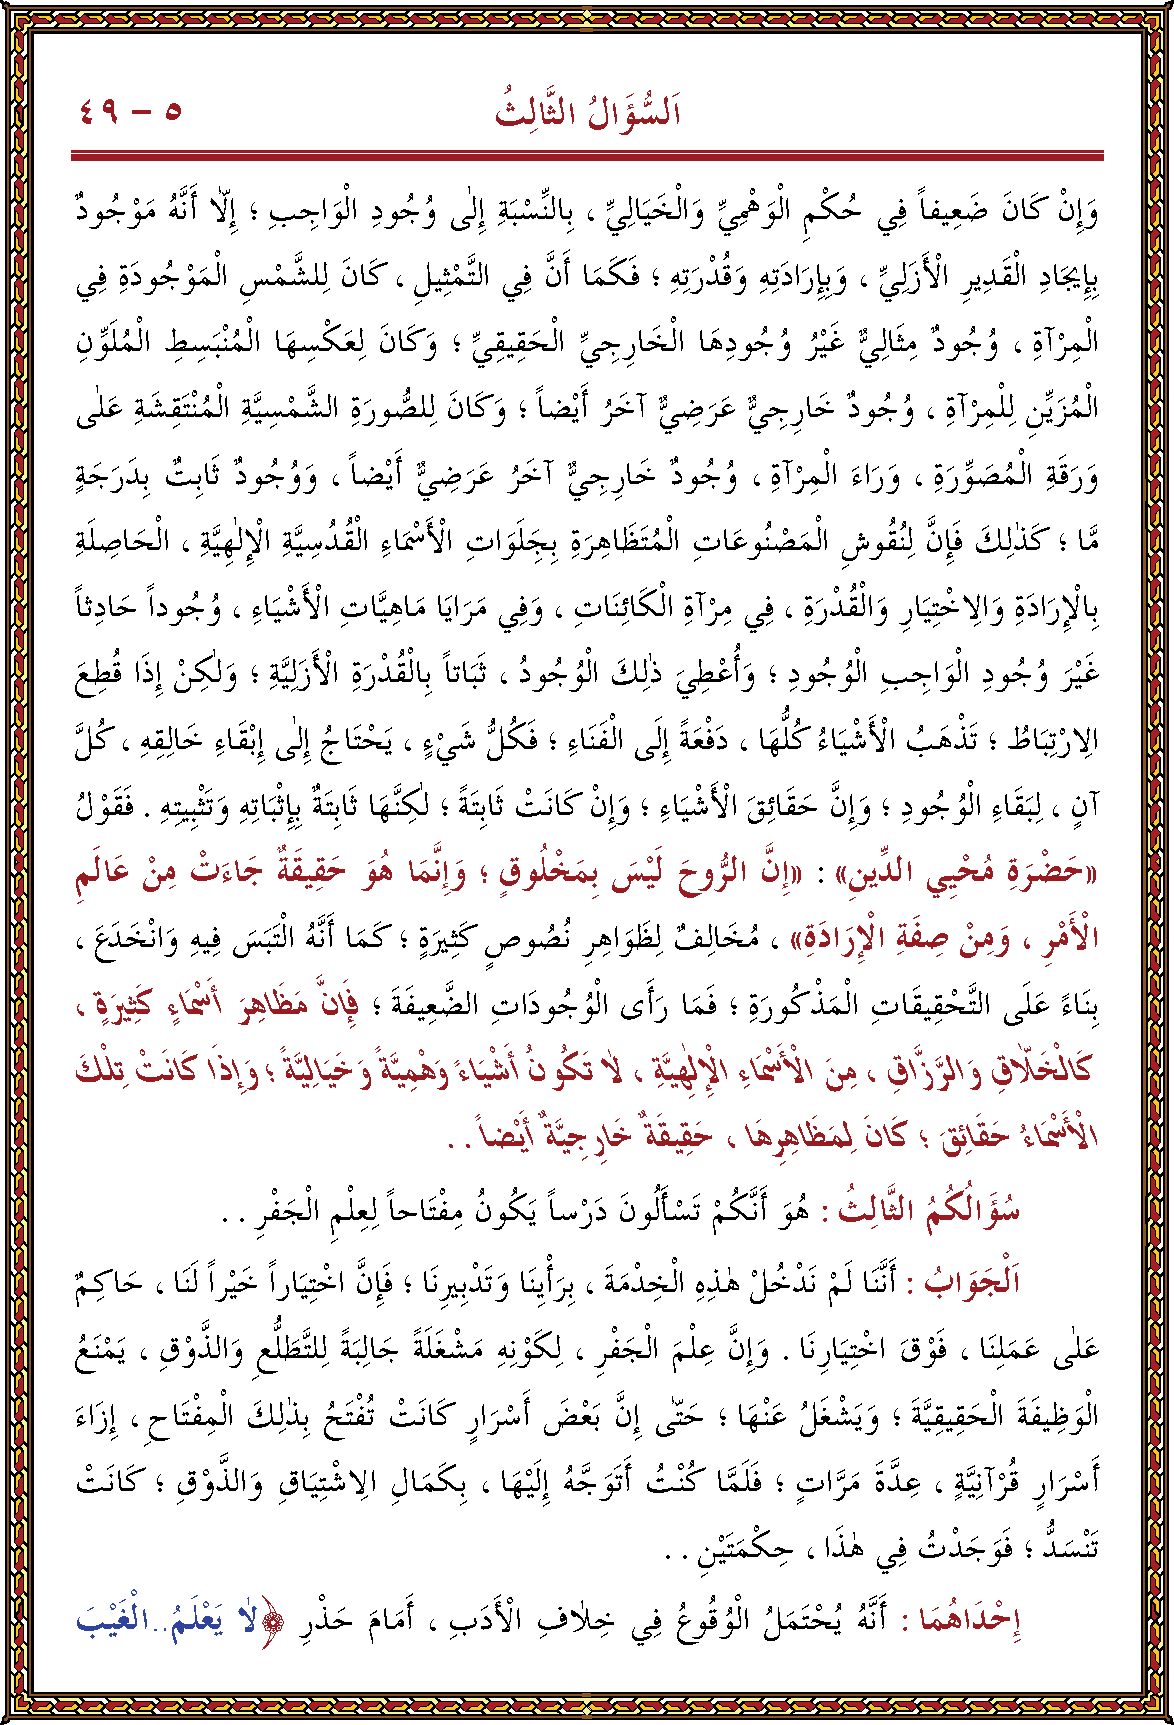 اَلسُّؤَالُ الثَّالِثُ ٥ - ٤٩
وَإِنْ كَانَ ضَعِيفاً فِي حُكْمِ الْوَهْمِيِّ وَالْخَيَالِيِّ ، بِالنِّسْبَةِ إِلٰى وُجُودِ الْوَاجِبِ ؛ إِلّا أَنَّهُ مَوْجُودٌ
بِإِيجَادِ الْقَدِيرِ الْأَزَلِيِّ ، وَبِإِرَادَتِهِ وَقُدْرَتِهِ ؛ فَكَمَا أَنَّ فِي التَّمْثِيلِ ، كَانَ لِلشَّمْسِ الْمَوْجُودَةِ فِي
الْمِرْآةِ ، وُجُودٌ مِثَالِيٌّ غَيْرُ وُجُودِهَا الْخَارِجِيِّ الْحَقِيقِيِّ ؛ وَكَانَ لِعَكْسِهَا الْمُنْبَسِطِ الْمُلَوِّنِ
الْمُزَيِّنِ لِلْمِرْآةِ ، وُجُودٌ خَارِجِيٌّ عَرَضِيٌّ آخَرُ أَيْضاً ؛ وَكَانَ لِلصُّورَةِ الشَّمْسِيَّةِ الْمُنْتَقِشَةِ عَلٰى
وَرَقَةِ الْمُصَوِّرَةِ ، وَرَاءَ الْمِرْآةِ ، وُجُودٌ خَارِجِيٌّ آخَرُ عَرَضِيٌّ أَيْضاً ، وَوُجُودٌ ثَابِتٌ بِدَرَجَةٍ
مَّا ؛ كَذٰلِكَ فَإِنَّ لِنُقُوشِ الْمَصْنُوعَاتِ الْمُتَظَاهِرَةِ بِجِلَوَاتِ الْأَسْمَاءِ الْقُدُسِيَّةِ الْإِلٰهِيَّةِ ، الْحَاصِلَةِ
بِالْإِرَادَةِ وَالِاخْتِيَارِ وَالْقُدْرَةِ ، فِي مِرْآةِ الْكَائِنَاتِ ، وَفِي مَرَايَا مَاهِيَّاتِ الْأَشْيَاءِ ، وُجُوداً حَادِثاً
غَيْرَ وُجُودِ الْوَاجِبِ الْوُجُودِ ؛ وَأُعْطِيَ ذٰلِكَ الْوُجُودُ ، ثَبَاتاً بِالْقُدْرَةِ الْأَزَلِيَّةِ ؛ وَلٰكِنْ إِذَا قُطِعَ
الِارْتِبَاطُ ؛ تَذْهَبُ الْأَشْيَاءُ كُلُّهَا ، دَفْعَةً إِلَى الْفَنَاءِ ؛ فَكُلُّ شَيْءٍ ، يَحْتَاجُ إِلٰى إِبْقَاءِ خَالِقِهِ ، كُلَّ
آنٍ ، لِبَقَاءِ الْوُجُودِ ؛ وَإِنَّ حَقَائِقَ الْأَشْيَاءِ ؛ وَإِنْ كَانَتْ ثَابِتَةً ؛ لٰكِنَّهَا ثَابِتَةٌ بِإِثْبَاتِهِ وَتَثْبِيتِهِ . فَقَوْلُ
«حَضْرَةِ مُحْيِي الدِّينِ» : «إِنَّ الرُّوحَ لَيْسَ بِمَخْلُوقٍ ؛ وَإِنَّمَا هُوَ حَقِيقَةٌ جَاءَتْ مِنْ عَالَمِ
الْأَمْرِ ، وَمِنْ صِفَةِ الْإِرَادَةِ» ، مُخَالِفٌ لِظَوَاهِرِ نُصُوصٍ كَثِيرَةٍ ؛ كَمَا أَنَّهُ الْتَبَسَ فِيهِ وَانْخَدَعَ ،
بِنَاءً عَلَى التَّحْقِيقَاتِ الْمَذْكُورَةِ ؛ فَمَا رَأَى الْوُجُودَاتِ الضَّعِيفَةَ ؛ فَإِنَّ مَظَاهِرَ أَسْمَاءٍ كَثِيرَةٍ ،
كَالْخَلّاقِ وَالرَّزَّاقِ ، مِنَ الْأَسْمَاءِ الْإِلٰهِيَّةِ ، لَا تَكُونُ أَشْيَاءً وَهْمِيَّةً وَخَيَالِيَّةً ؛ وَإِذَا كَانَتْ تِلْكَ
الْأَسْمَاءُ حَقَائِقَ ؛ كَانَ لِمَظَاهِرِهَا ، حَقِيقَةٌ خَارِجِيَّةٌ أَيْضاً . .
سُؤَالُكُمُ الثَّالِثُ : هُوَ أَنَّكُمْ تَسْأَلُونَ دَرْساً يَكُونُ مِفْتَاحاً لِعِلْمِ الْجَفْرِ . .
اَلْجَوَابُ : أَنَّنَا لَمْ نَدْخُلْ هٰذِهِ الْخِدْمَةَ ، بِرَأْيِنَا وَتَدْبِيرِنَا ؛ فَإِنَّ اخْتِيَاراً خَيْراً لَنَا ، حَاكِمٌ
عَلٰى عَمَلِنَا ، فَوْقَ اخْتِيَارِنَا . وَإِنَّ عِلْمَ الْجَفْرِ ، لِكَوْنِهِ مَشْغَلَةً جَالِبَةً لِلتَّطَلُّعِ وَالذَّوْقِ ، يَمْنَعُ
الْوَظِيفَةَ الْحَقِيقِيَّةَ ؛ وَيَشْغَلُ عَنْهَا ؛ حَتّٰى إِنَّ بَعْضَ أَسْرَارٍ كَانَتْ تُفْتَحُ بِذٰلِكَ الْمِفْتَاحِ ، إِزَاءَ
أَسْرَارٍ قُرْآنِيَّةٍ ، عِدَّةَ مَرَّاتٍ ؛ فَلَمَّا كُنْتُ أَتَوَجَّهُ إِلَيْهَا ، بِكَمَالِ الِاشْتِيَاقِ وَالذَّوْقِ ؛ كَانَتْ
تَنْسَدُّ ؛ فَوَجَدْتُ فِي هٰذَا ، حِكْمَتَيْنِ . .
إِحْدَاهُمَا : أَنَّهُ يُحْتَمَلُ الْوُقُوعُ فِي خِلَافِ الْأَدَبِ ، أَمَامَ حَذْرِ ﴿لَا يَعْلَمُ..الْغَيْبَ